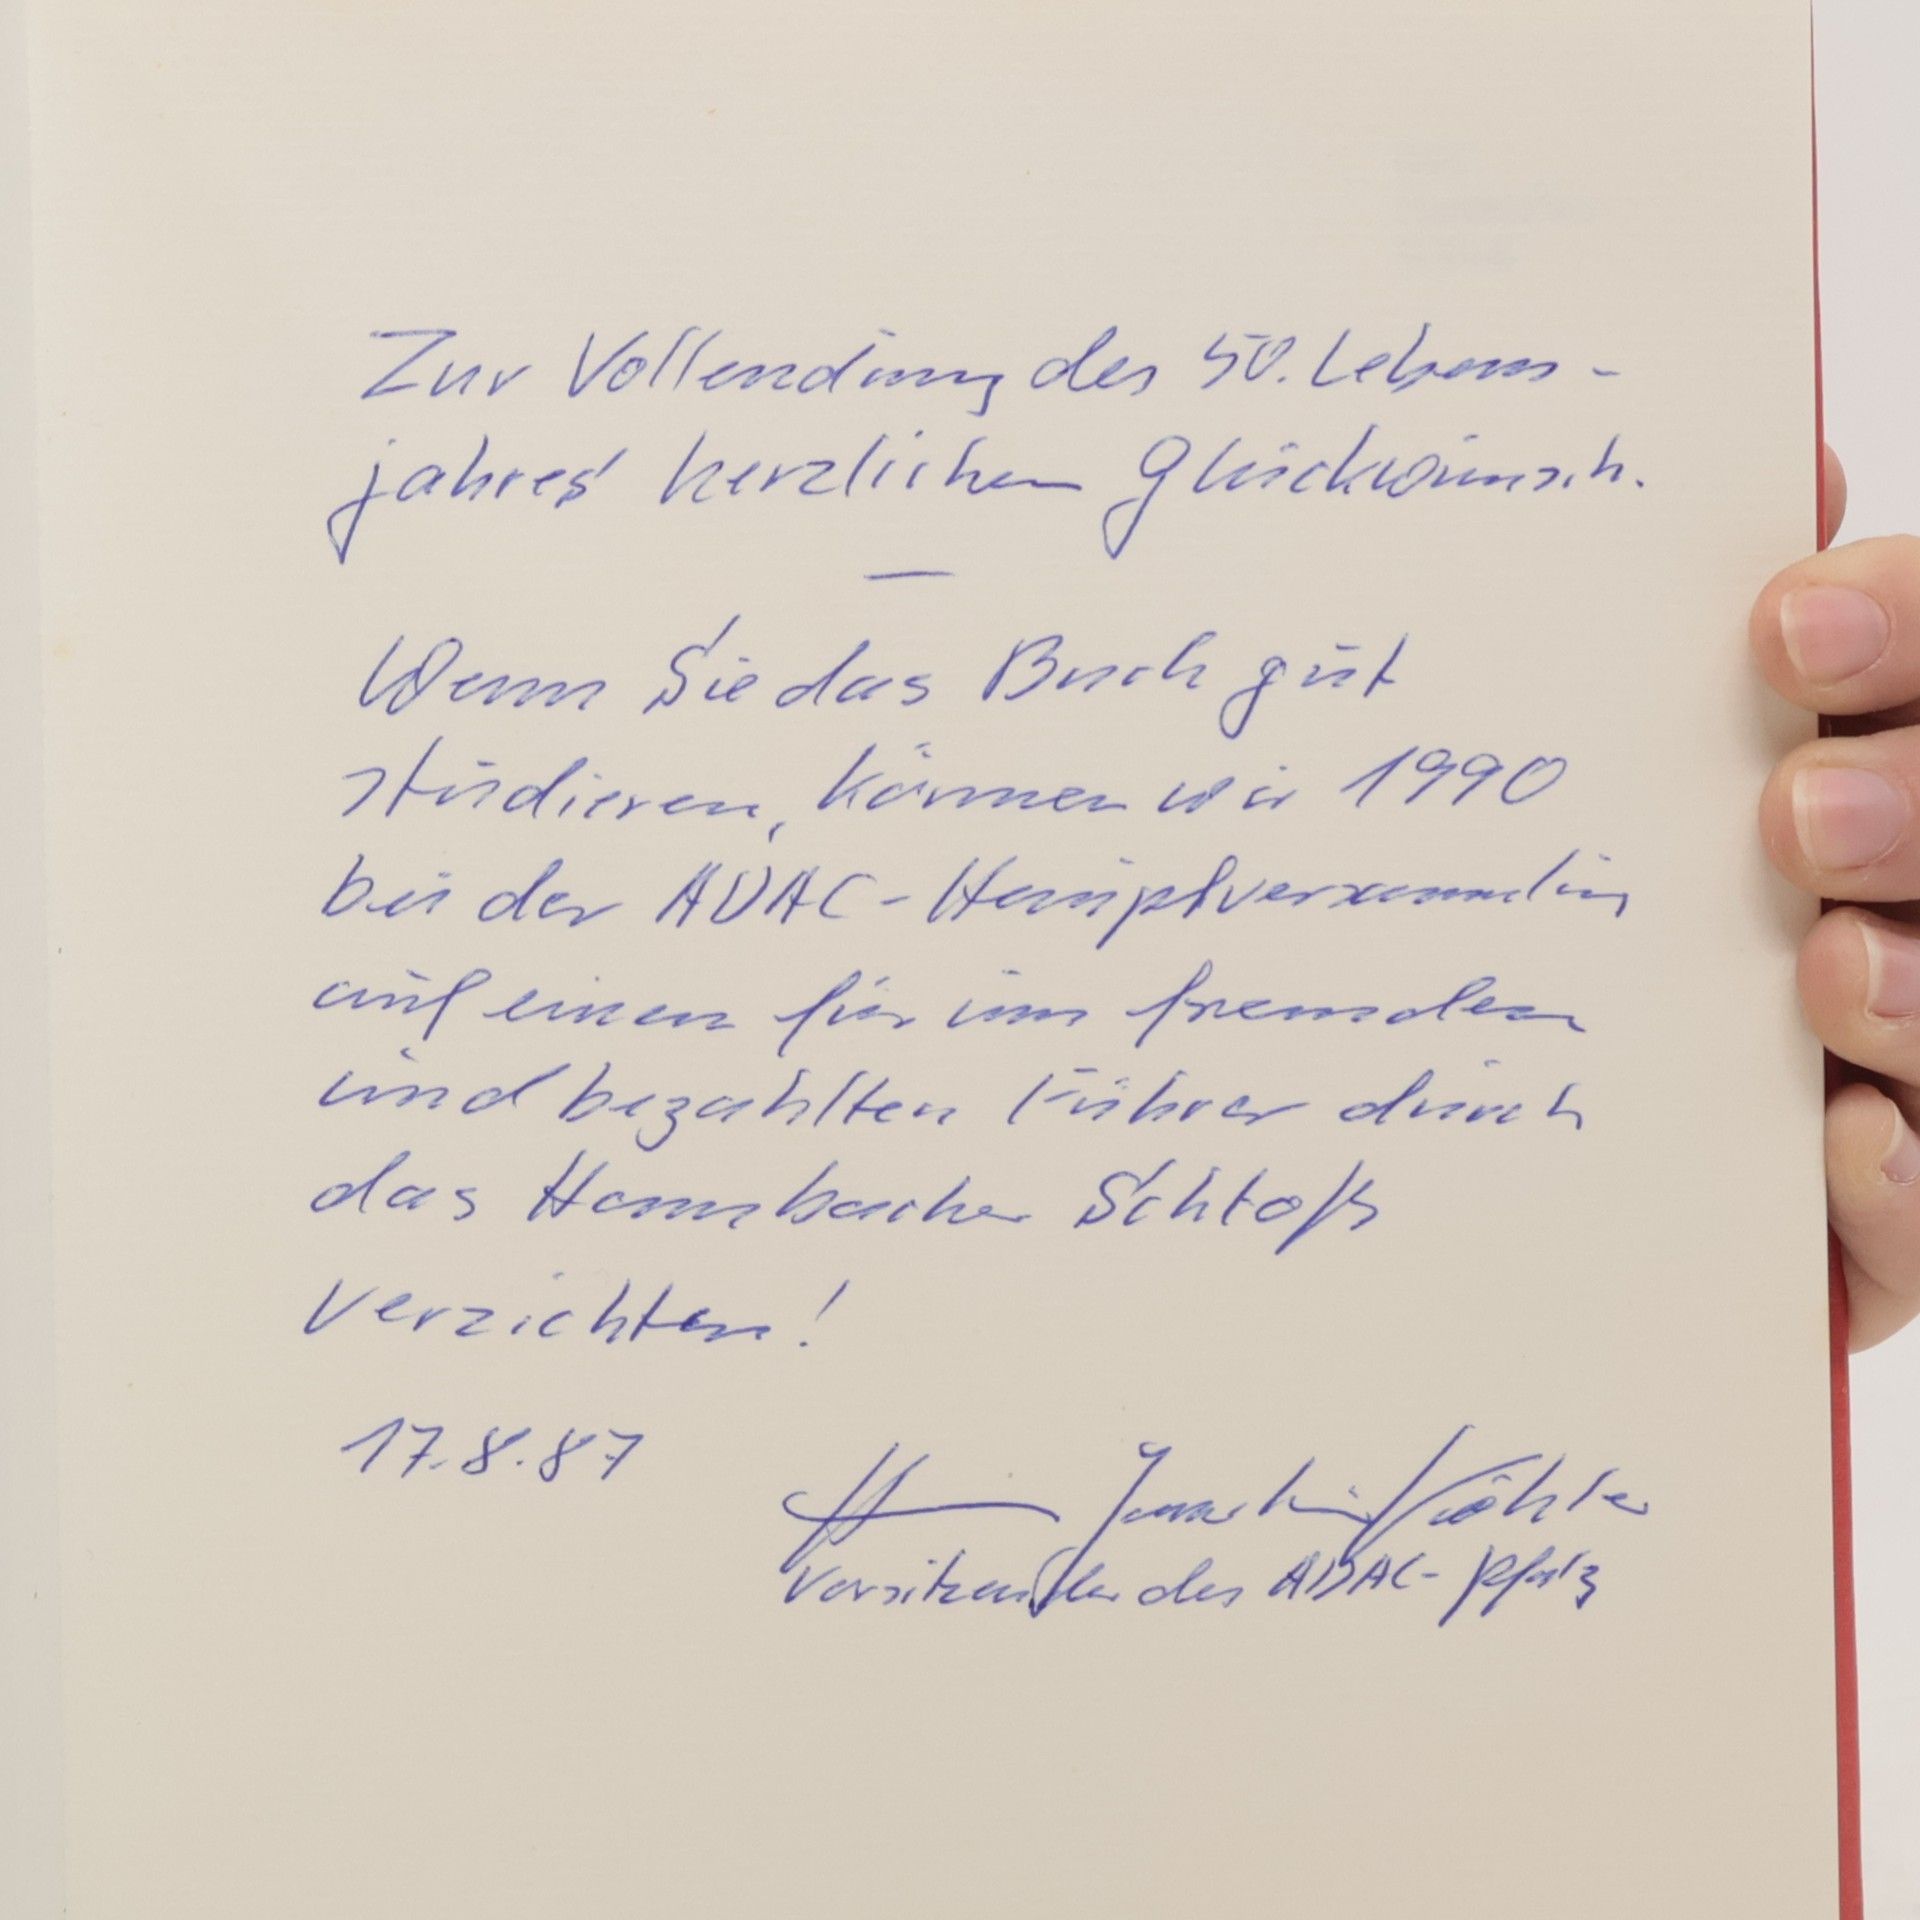 Zur Vollendung des 50. Lebens-
jahres herzlichen Glückwunsch.
—
Wenn Sie das Buch gut
studieren, können wir 1990
bei der ADAC-Hauptversammlung
auf einen für uns fremden
und bezahlten Führer durch
das Hambacher Schloß
verzichten!
17.8.87
Joachim Köhler
Vorsitzender des ADAC-Pfalz